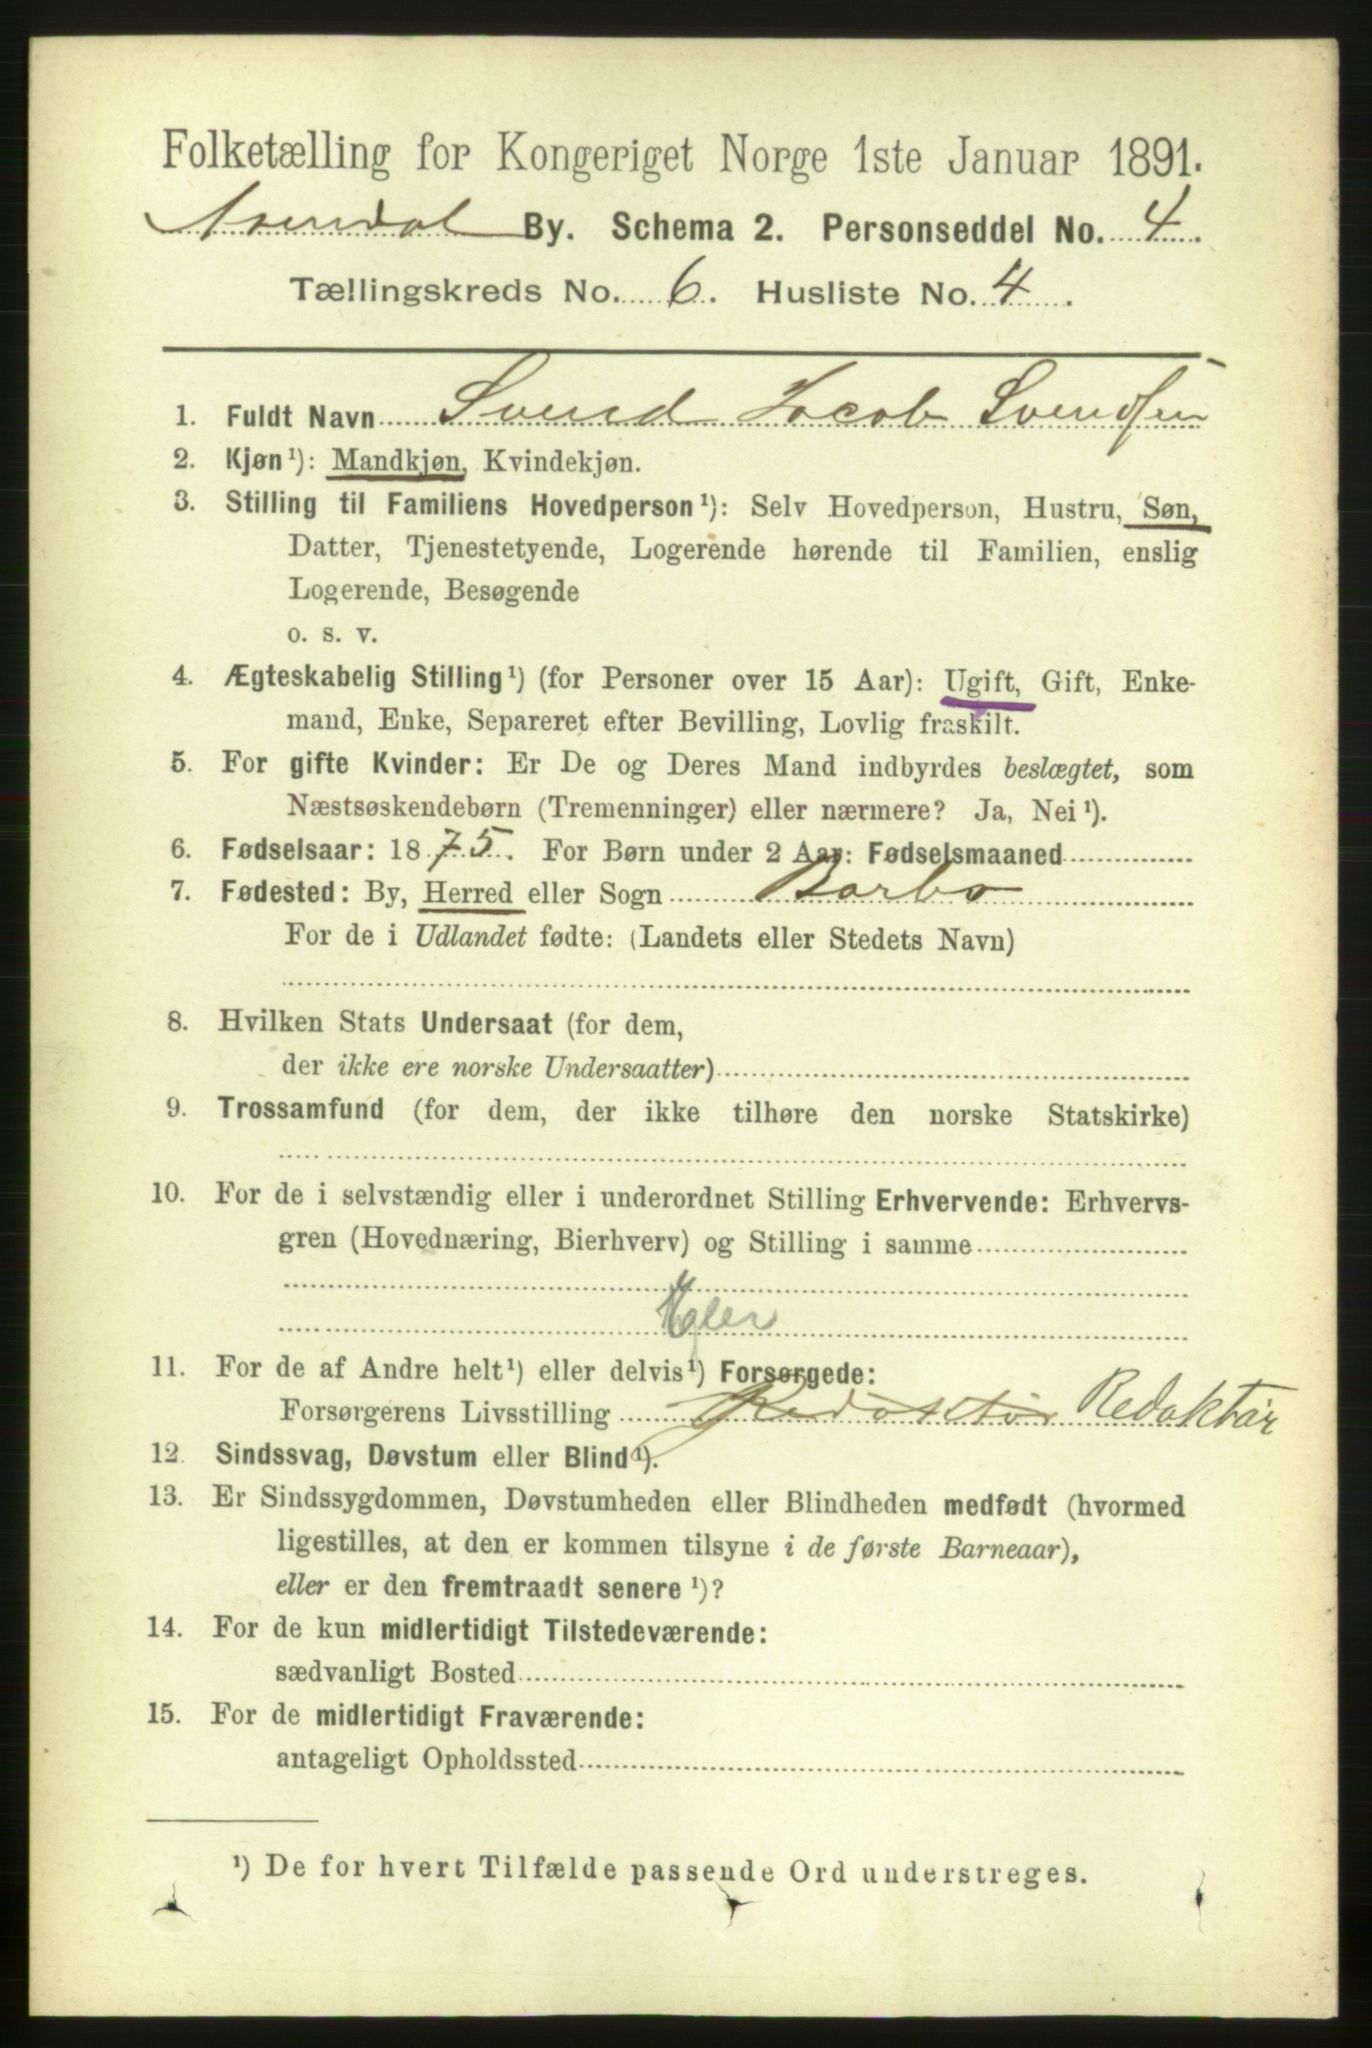 Folketælling for Kongeriget Norge 1ste Januar 1891.
Arendal By. Schema 2. Personseddel No. 4.
Tællingskreds No. 6. Husliste No. 4.
1. Fuldt Navn Svend Jacob Svendsen
2. Kjøn¹): Mandkjøn, Kvindekjøn.
3. Stilling til Familiens Hovedperson¹): Selv Hovedperson, Hustru, Søn,
Datter, Tjenestetyende, Logerende hørende til Familien, enslig
Logerende, Besøgende
o. s. v.
4. Ægteskabelig Stilling¹) (for Personer over 15 Aar): Ugift, Gift, Enke-
mand, Enke, Separeret efter Bevilling, Lovlig fraskilt.
5. For gifte Kvinder: Er De og Deres Mand indbyrdes beslægtet, som
Næstsøskendebørn (Tremenninger) eller nærmere? Ja, Nei¹).
6. Fødselsaar: 1875. For Børn under 2 Aar: Fødselsmaaned
7. Fødested: By, Herred eller Sogn Barbo
For de i Udlandet fødte: (Landets eller Stedets Navn)
8. Hvilken Stats Undersaat (for dem,
der ikke ere norske Undersaatter)
9. Trossamfund (for dem, der ikke tilhøre den norske Statskirke)
10. For de i selvstændig eller i underordnet Stilling Erhvervende: Erhvervs-
gren (Hovednæring, Bierhverv) og Stilling i samme
11. For de af Andre helt¹) eller delvis¹) Forsørgede:
Forsørgerens Livsstilling Redaktør Redaktør
12. Sindssvag, Døvstum eller Blind¹).
13. Er Sindssygdommen, Døvstumheden eller Blindheden medfødt (hvormed
ligestilles, at den er kommen tilsyne i de første Barneaar),
eller er den fremtraadt senere¹)?
14. For de kun midlertidigt Tilstedeværende:
sædvanligt Bosted
15. For de midlertidigt Fraværende:
antageligt Opholdssted
¹) De for hvert Tilfælde passende Ord understreges.